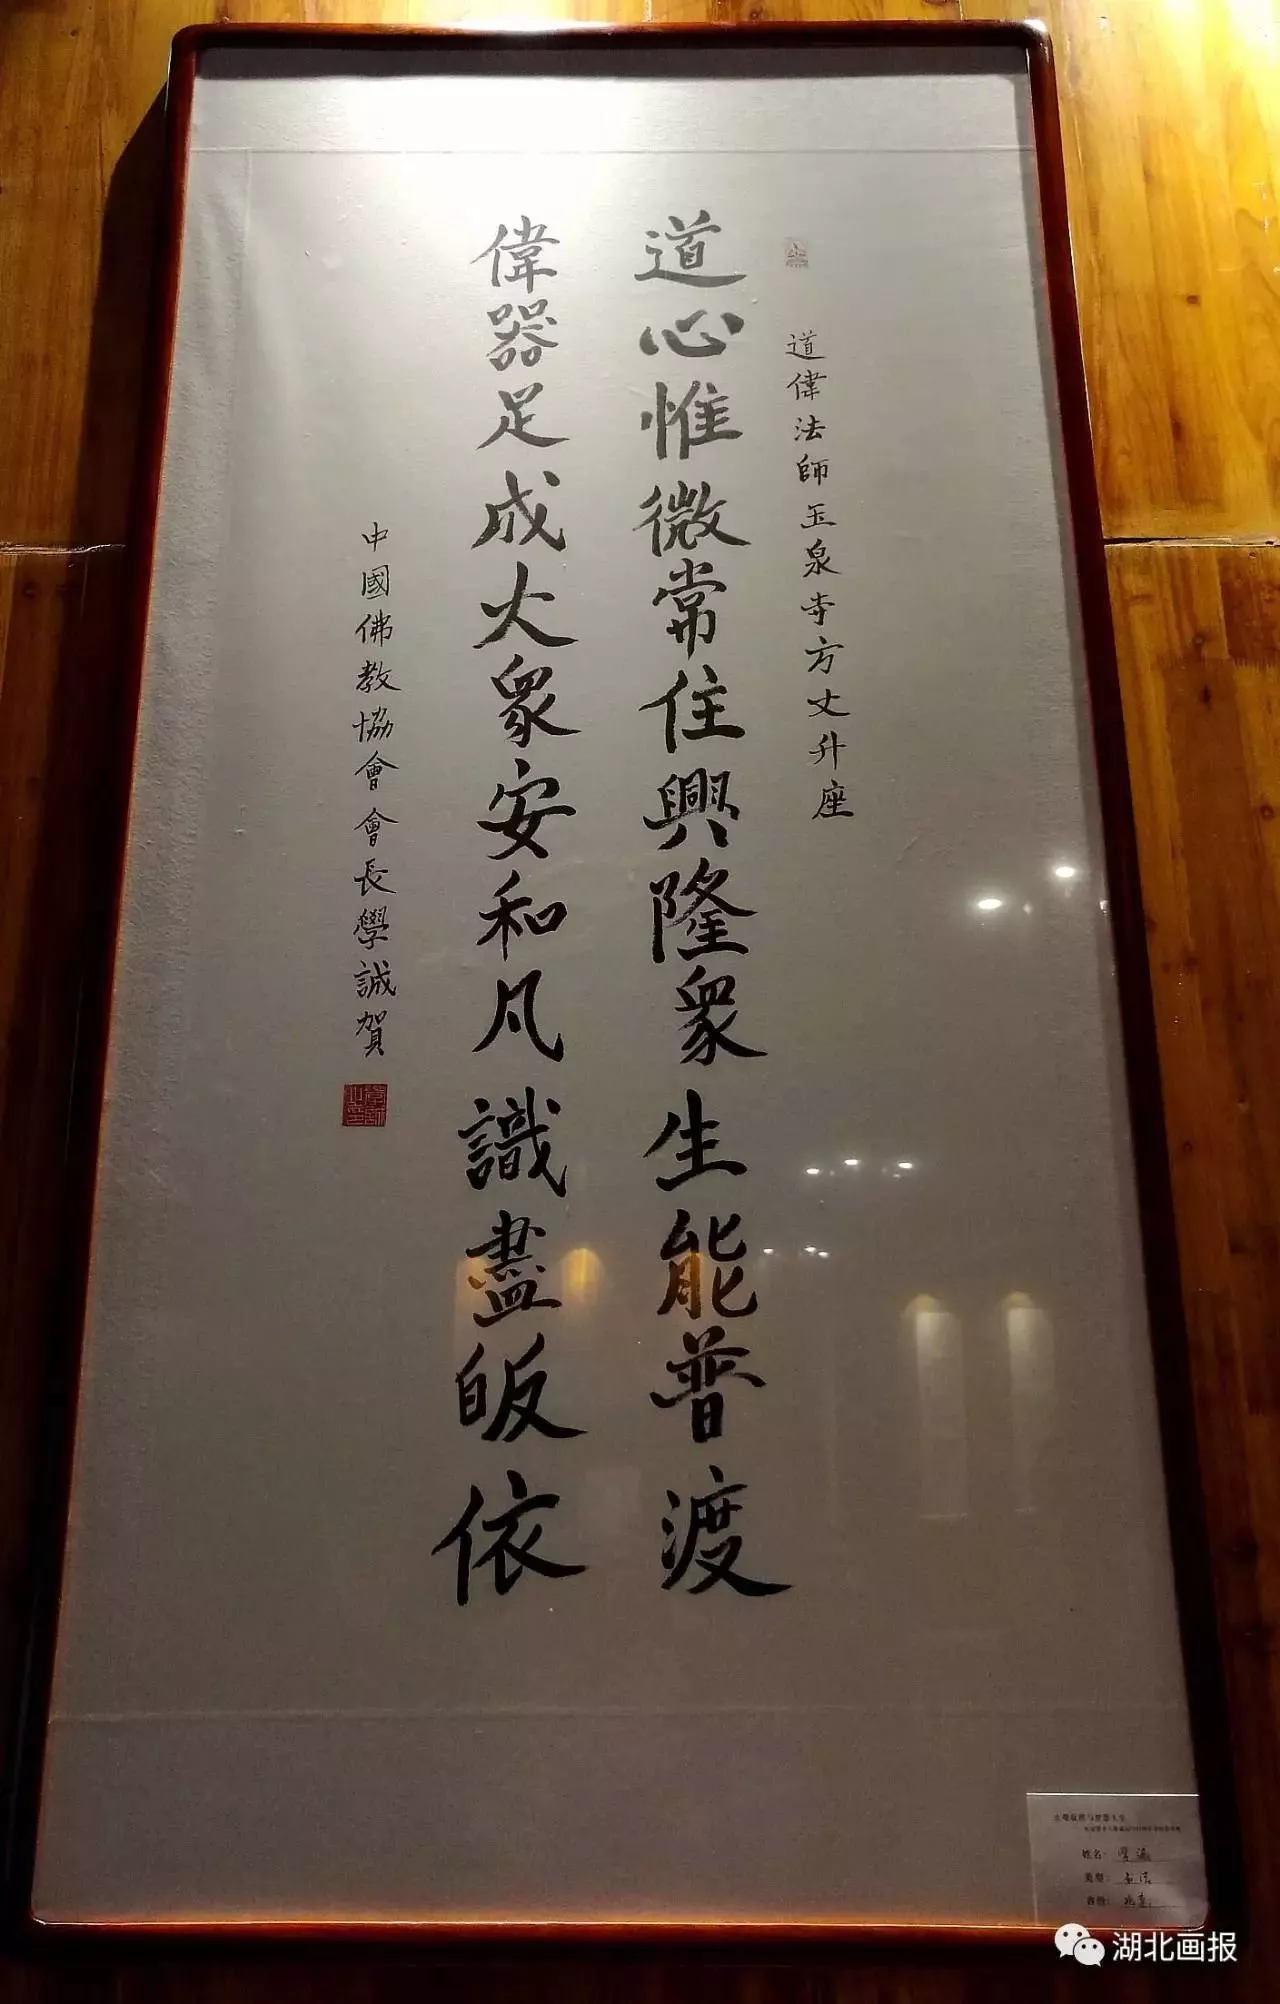 道偉法師玉泉寺方丈升座
道心惟微常住興隆眾生能普渡
偉器足成大眾安和凡識盡皈依
中國佛教協會會長學誠賀
姓名：學誠
类型：书法
省份：北京
湖北画报